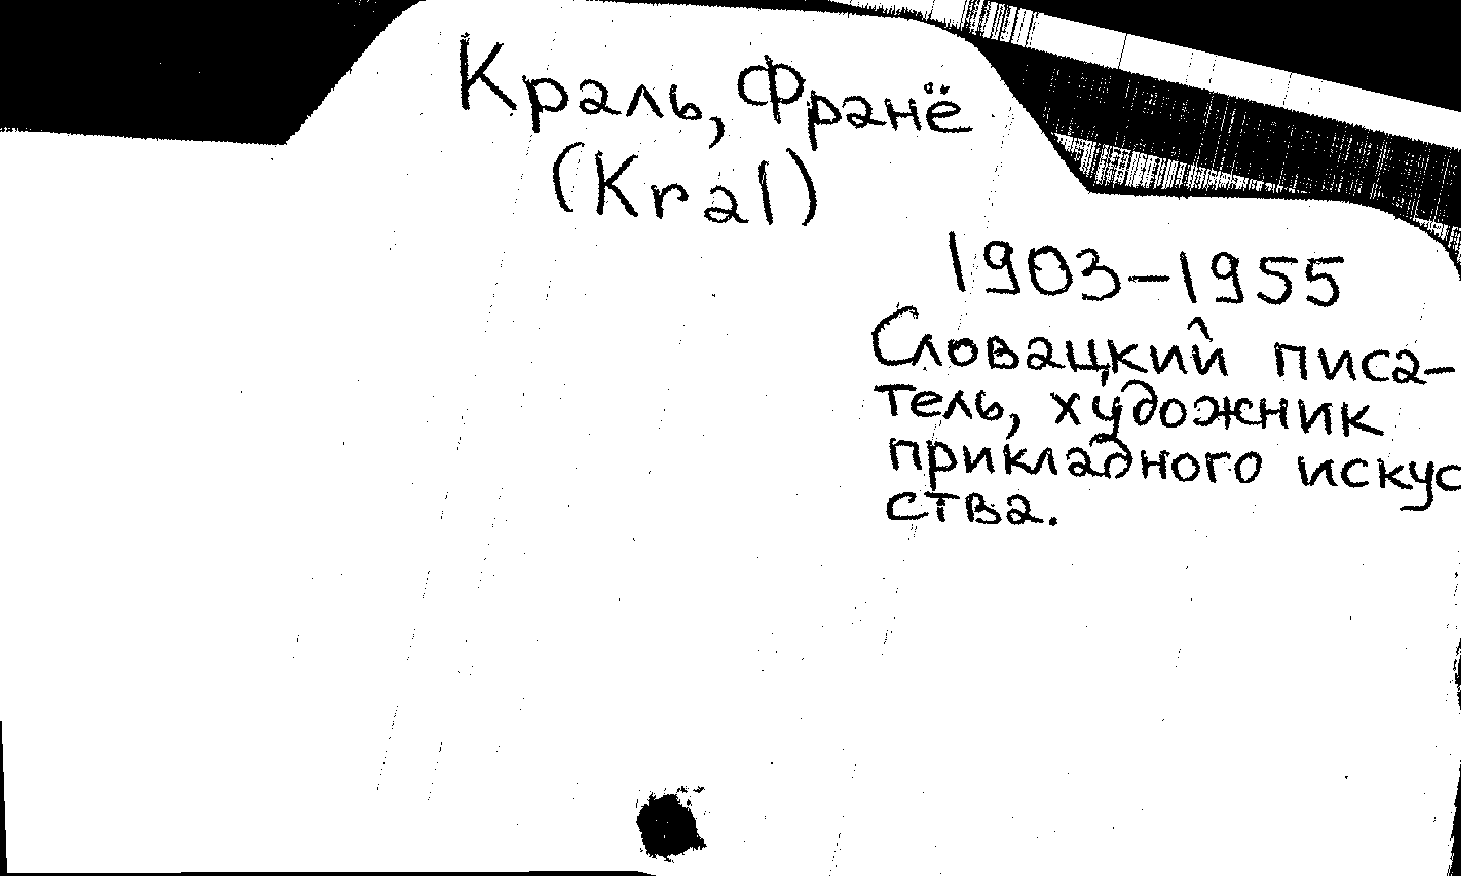 Краль, Франё
(Kral)
1903-1955
Словацкий писа-
тель, художник
прикладного искус
ства.